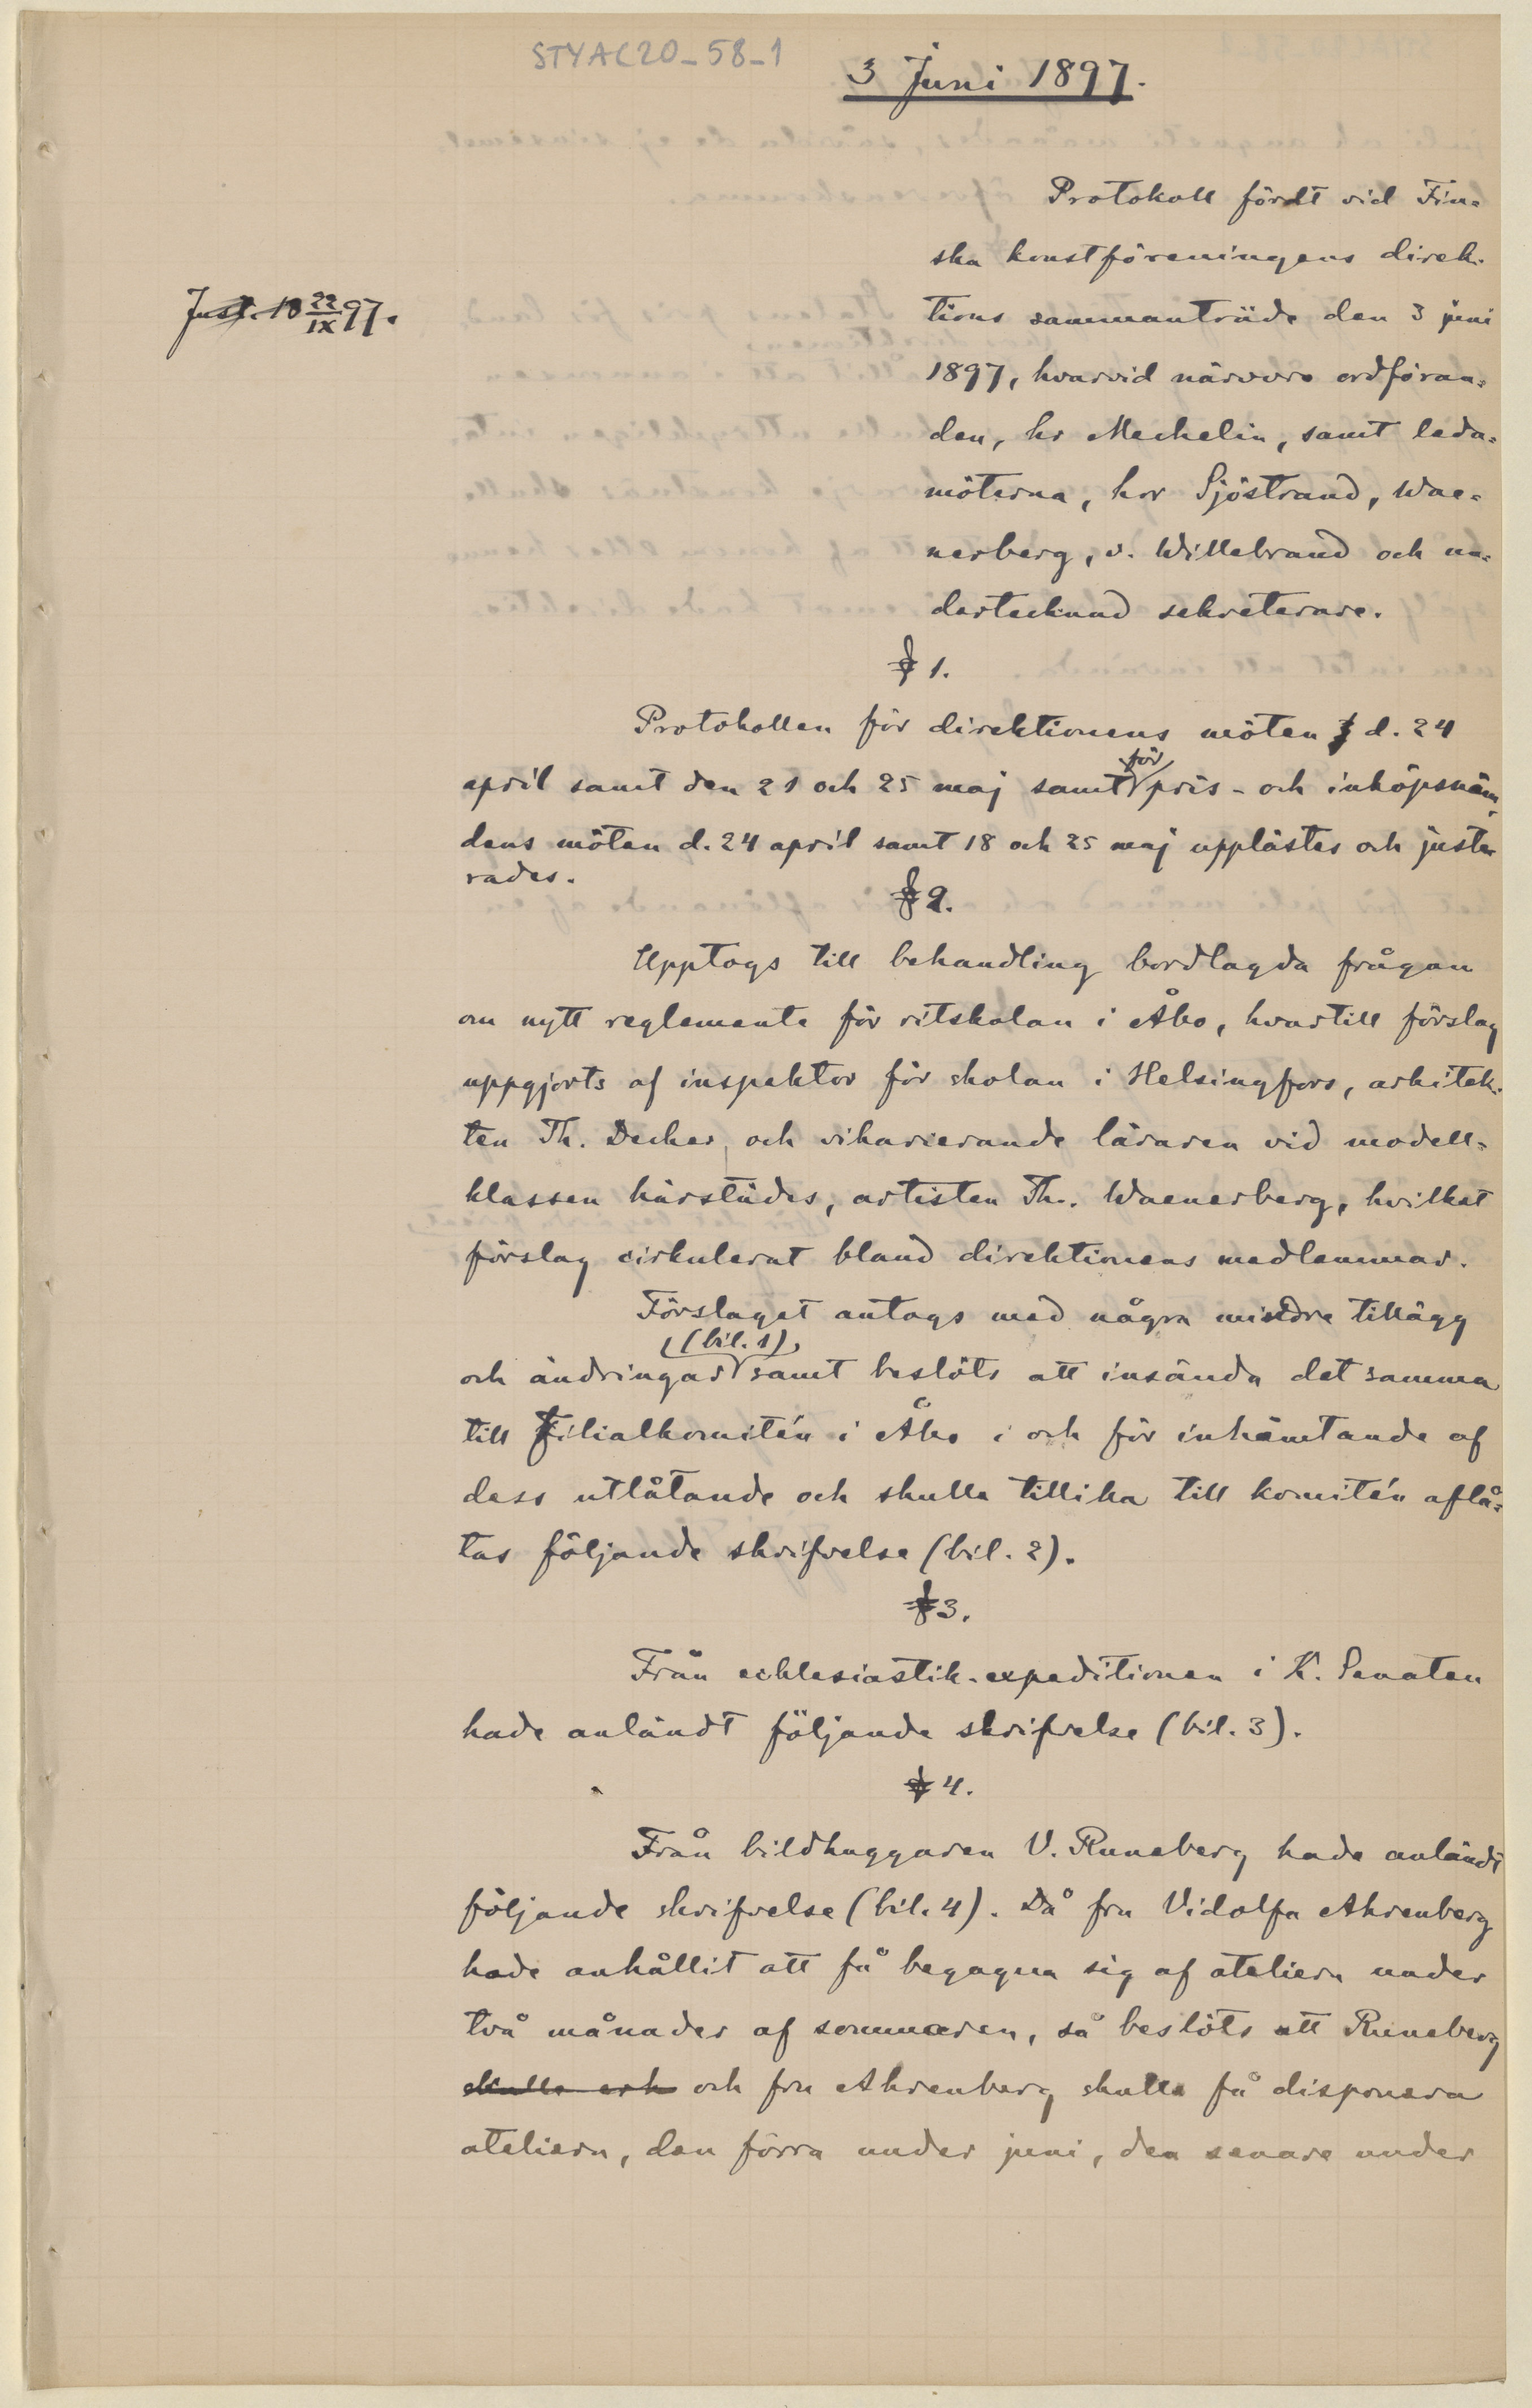 STYAC20-58-1
3 Juni 1897.
Protokoll fördt vid Fin-
ska konstföreningens direk-
Just. 18 22/IX 97.
tions sammanträde den 3 juni
1897, hvarvid närvoro ordföran-
den, hr Mechelin, samt leda-
möterna, hrr Sjöstrand, Wae-
nerberg, v. Willebrand och un-
dertecknad sekreterare.
§ 1.
Protokollen för direktionens möten d. 24
april samt den 21 och 25 maj samt för pris- och inköpsnäm-
dens möten d. 24 april samt 18 och 25 maj upplästes och juste-
rades.
§ 2.
Upptogs till behandling bordlagda frågan
om nytt reglemente för ritskolan i Åbo, hvartill förslag
uppgjorts af inspektor för skolan i Helsingfors, arkitek-
ten Th. Decker och vikarierande läraren vid modell-
klassen härstädes, artisten Th. Waenerberg, hvilket
förslag cirkulerat bland direktionens medlemmar.
Förslaget antogs med några mindre tillägg
och ändringar (bil. 1), samt beslöts att insända det samma
till Filialkomitén i Åbo i och för inhämtande af
dess utlåtande och skulle tillika till komitén aflå-
tas följande skrifvelse (bil. 2).
§ 3.
Från ecklesiastik-expeditionen i K. Senaten
hade anländt följande skrifvelse (bil. 3).
§ 4.
Från bildhuggaren V. Runeberg hade anländt
följande skrifvelse (bil. 4). Då fru Vidolfa Ahrenberg
hade anhållit att få begagna sig af ateliern under
två månader af sommaren, så beslöts att Runeberg
skulle och och fru Ahrenberg skulle få disponera
ateliern, den förra under juni, den senare under